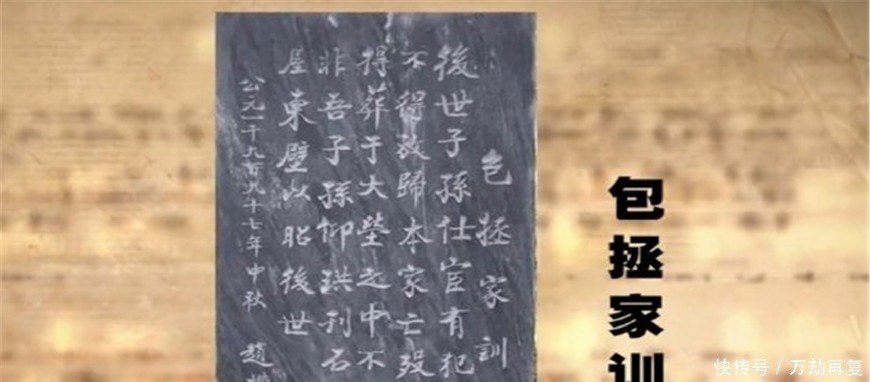 包拯家训
包拯家訓
後世子孫仕宦有犯
不得放歸本家亡歿
得葬于大塋之中不
非吾子孫仰珙刊石
屋東壁以昭後世
公元一千九百九十七年中秋 趙
快传号 / 万劫再复